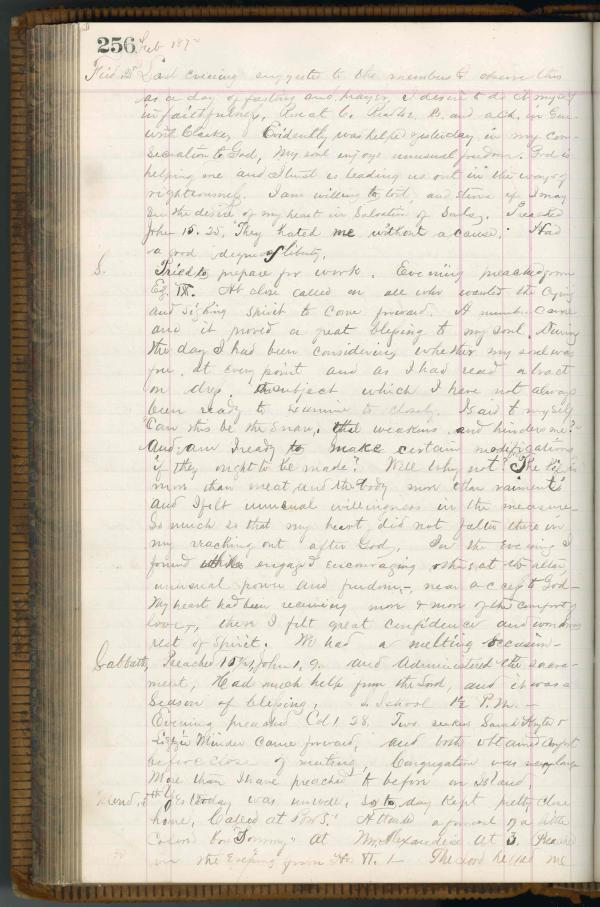 256 Feb 187
Frid. Last evening suggested to the members to observe this
as a day of fasting and prayer. I desire to do it myself
in faithfulness. Rose at 6. Read 42. B. and a ch. in Gen.
with Clarke. Evidently was helped yesterday in my con-
secration to God, My soul enjoys unusual freedom. God is
helping me and I trust is leading us out in the way of
righteousness. I am willing to toil, and strive if I may
see the desire of my heart in Salvation of Souls. I read
John 15. 25, "They hated me without a cause." Had
a good degree of liberty.
S. Tried to prepare for work. Evening preached from
Ez. IX. At close called on all who wanted the crying
and sighing spirit to come forward. A number came
and it proved a great blessing to my soul. During
the day I had been considering whether my soul was
free. at every point and as I had read a tract
on dress, the subject which I have not always
been ready to examine to closely. I said to myself
"Can this be the snare, that weakens and hinders me?"
And am I ready to make certain modifications
if they ought to be made? Well Why not? "The life is
more than meat, and the body more than raiment"
and I felt unusual willingness in the measure
So much so that my heart did not falter there in
my reaching out after God. In the evening I
found while engaged encouraging others at the altar
unusual power and freedom, near access to God
My heart had been receiving more & more of the comfort of
love, then I felt great confidence and wondrous
rest of Spirit. We had a melting occasion
Sabbath, Preached 10½, John 1, 9. and Administered the Sacra-
ment, Had much help from the Lord, and it was a
Season of blessing. S. School 1½ P.M.
Evening preached Col 1. 28. Two seekers Sarah &
Lizzie Minder came forward, and both obtained comfort
before close of meeting. Congregation was very large
More than I have preached to before on Island.
Mond. Yesterday was unwell, So to day kept pretty close
home, Called at Attended a funeral of a little
Colored boy "Tommy" At Wm. Alexandria at 3. Preached
in the Evening from 11. 1 The Lord helped me